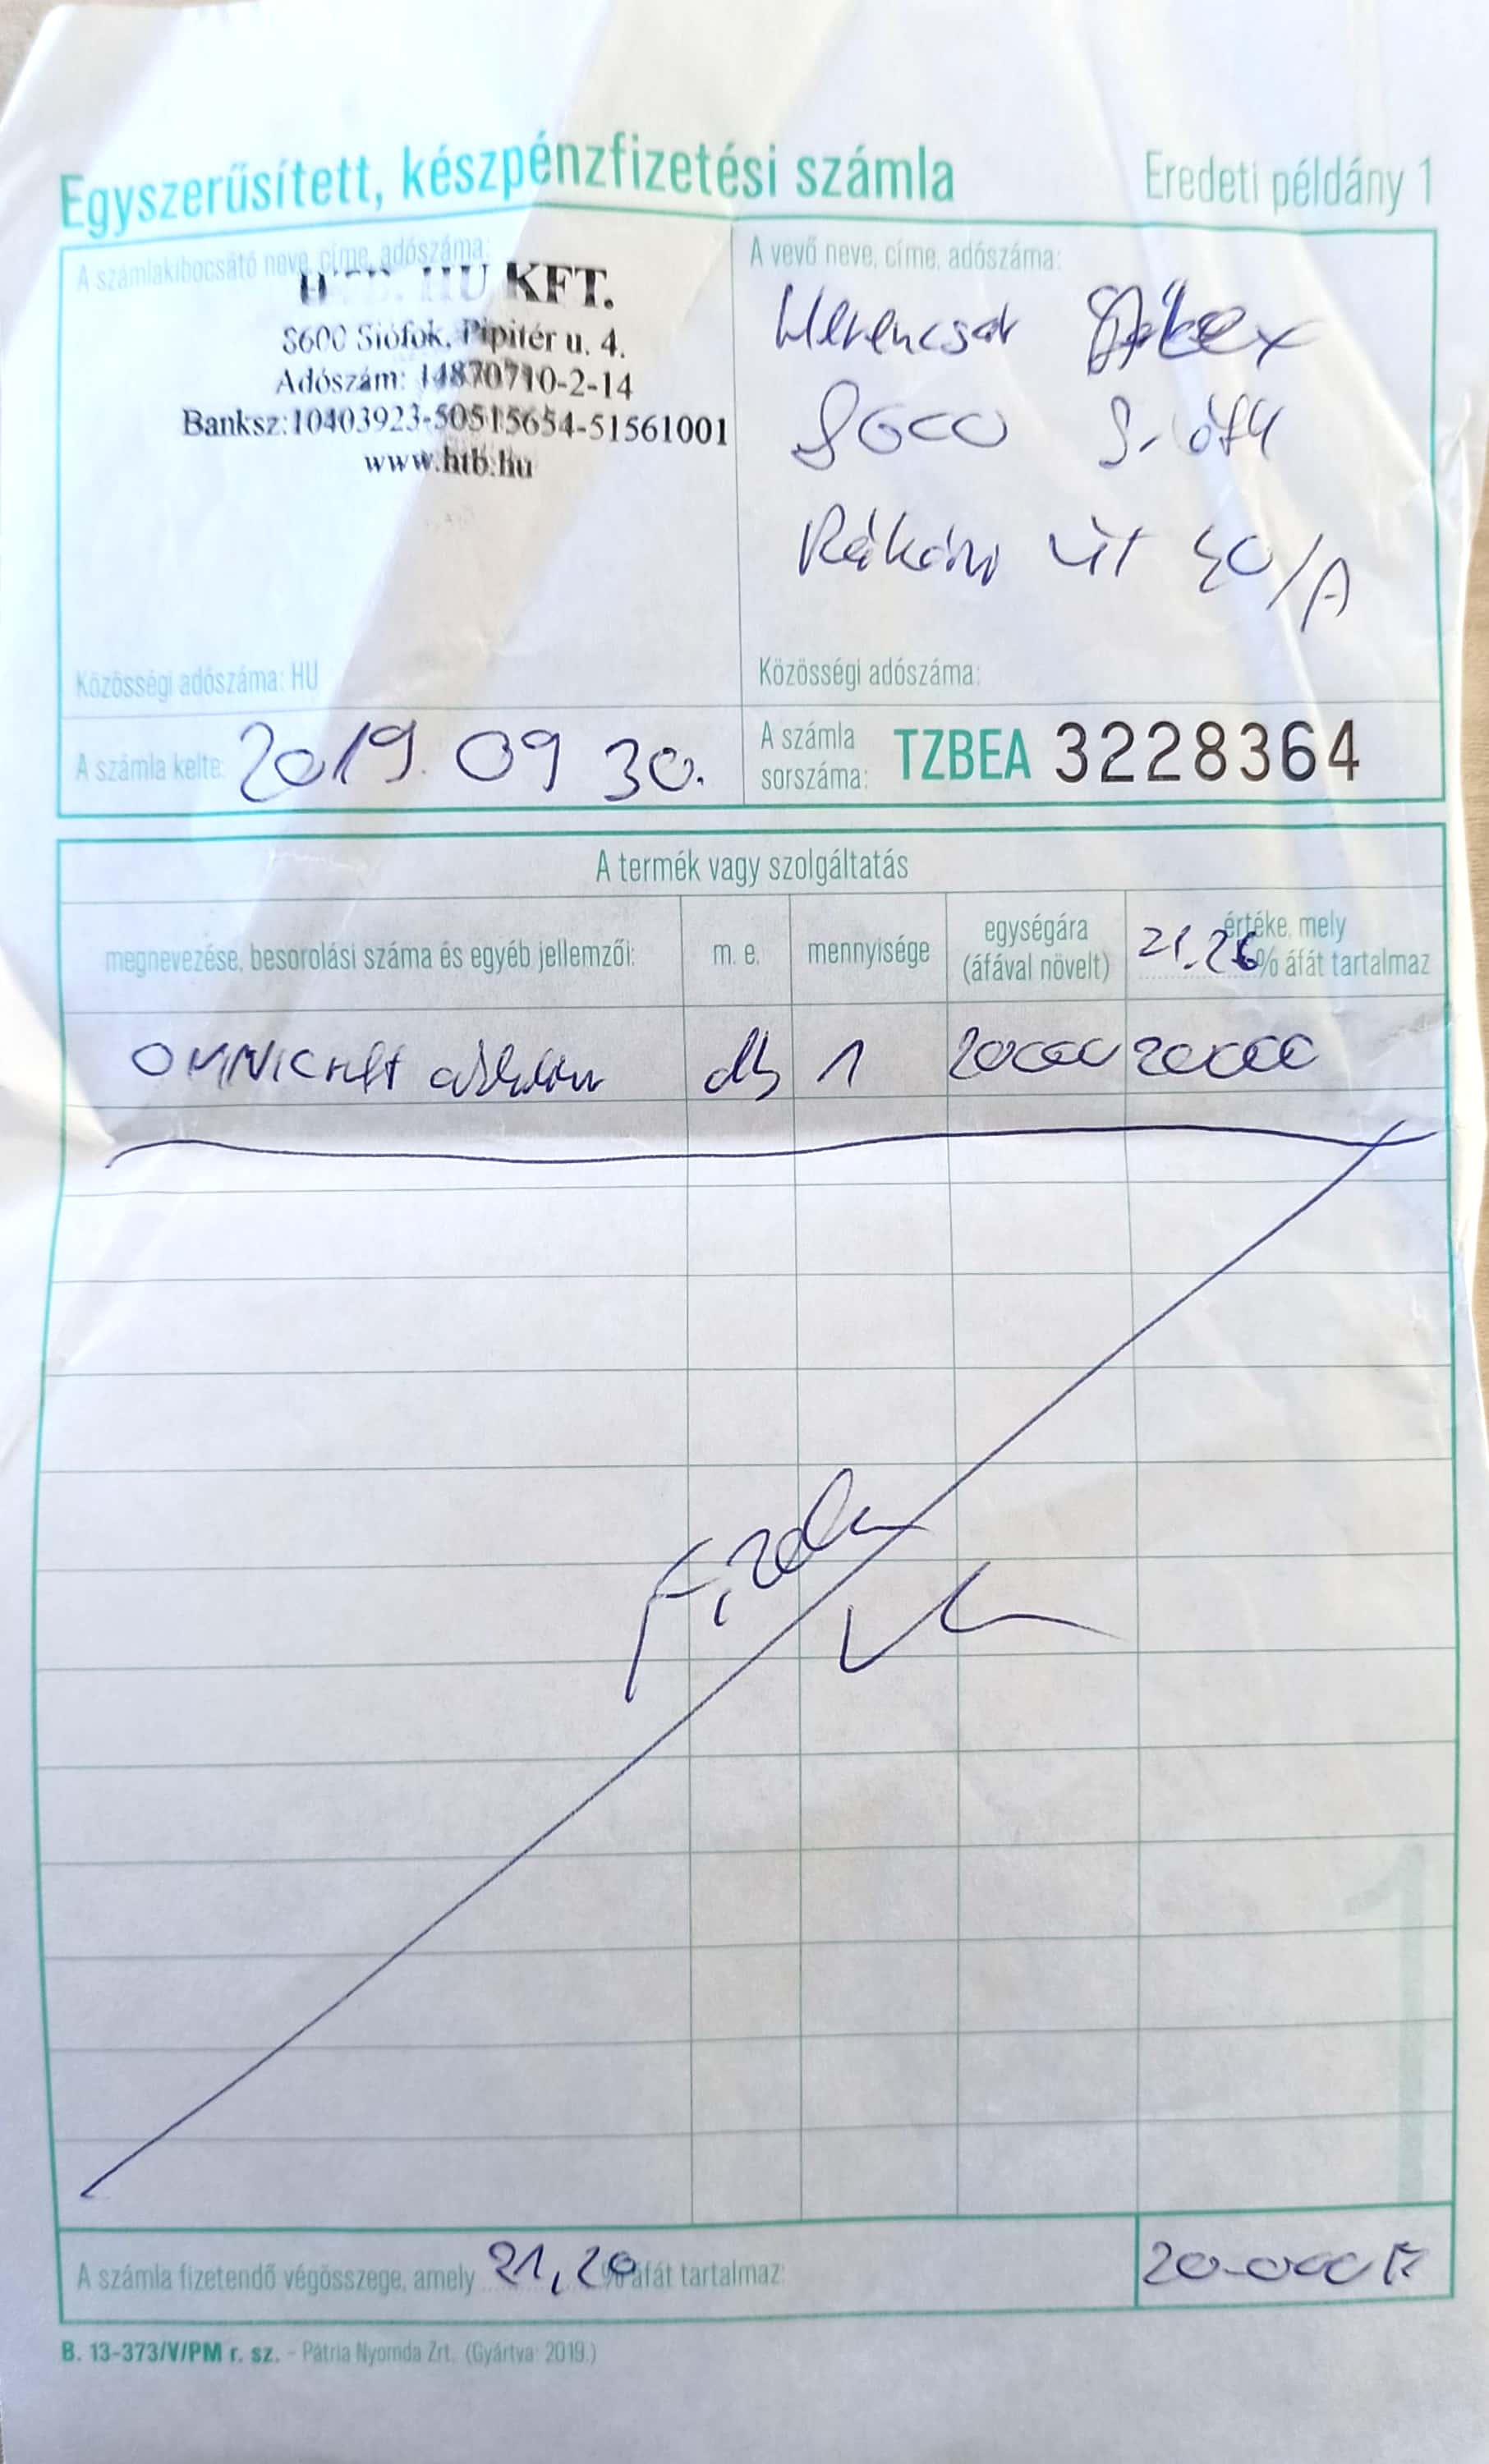 Egyszerűsített, készpénzfizetési számla
Eredeti példány 1
A számlakibocsátó neve, címe, adószáma:
KFT.
8600 Siófok, Pipitér u. 4.
Adószám: 14870710-2-14
Banksz:10403923-50515654-51561001
www.htb.hu
Közösségi adószáma: HU
A vevő neve, címe, adószáma:
8600 Siófok
Rákóczi út 40/A
Közösségi adószáma:
A számla kelte: 2019. 09 30.
A számla
sorszáma: TZBEA 3228364
A termék vagy szolgáltatás
megnevezése, besorolási száma és egyéb jellemzői:
m. e.
mennyisége
egységára
(áfával növelt)
értéke, mely
21.26 % áfát tartalmaz
db 1 20000 20000
Fizetve
A számla fizetendő végösszege, amely 21,20 % áfát tartalmaz:
20.000 Ft
B. 13-373/V/PM r. sz. - Pátria Nyomda Zrt. (Gyártva: 2019.)
1